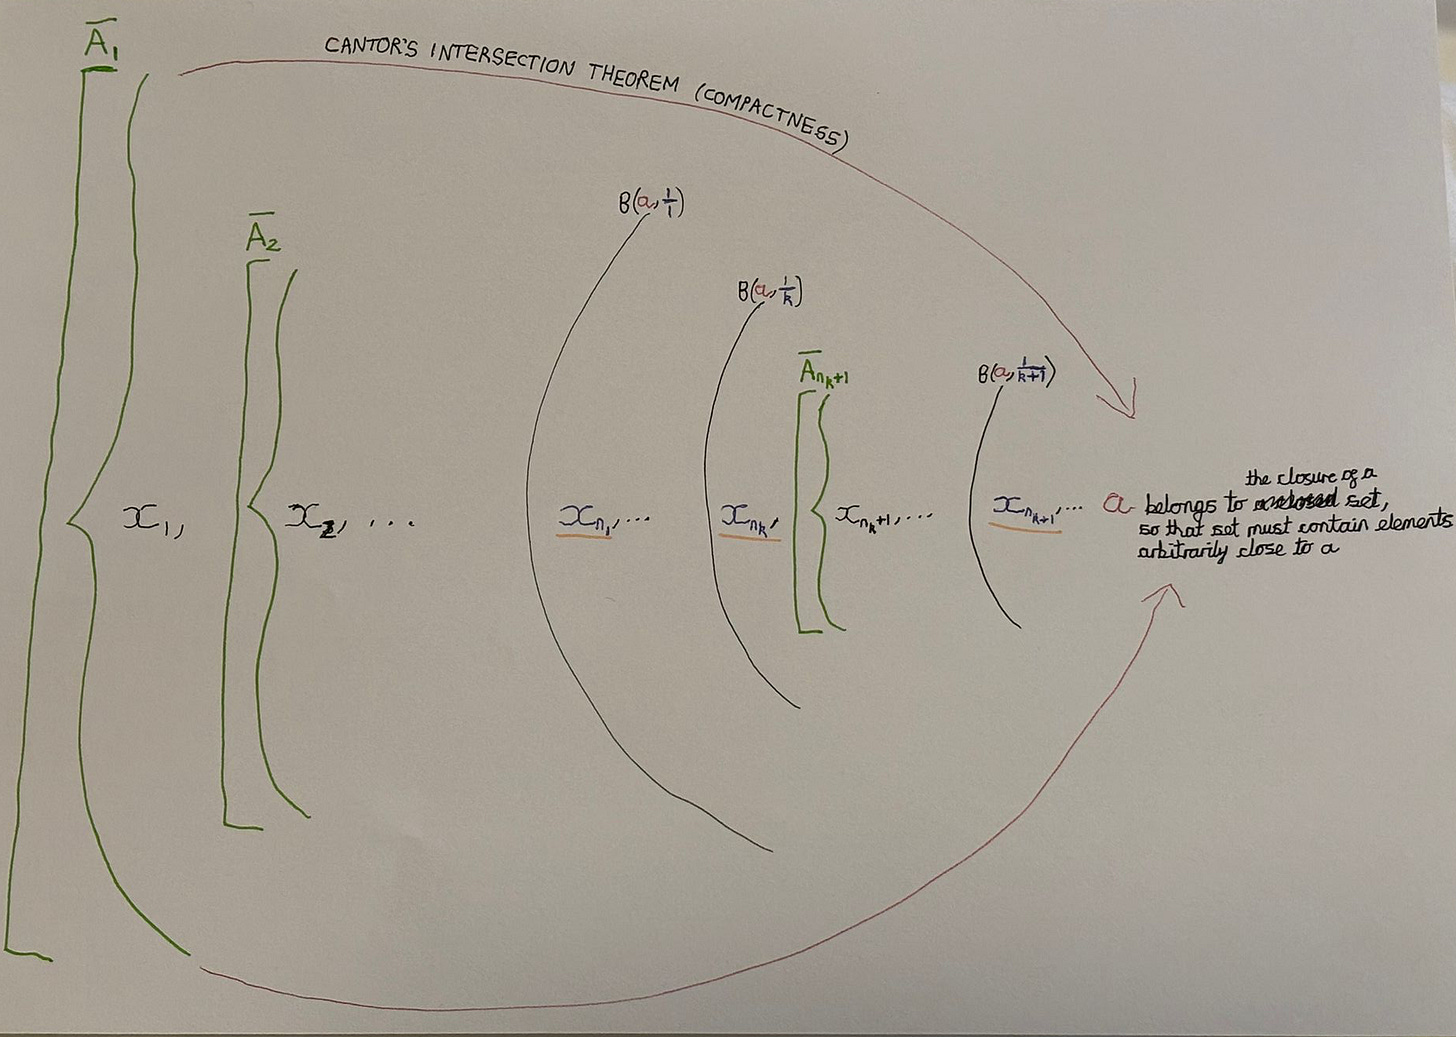 A̅₁
CANTOR'S INTERSECTION THEOREM (COMPACTNESS)
B(a, 1/1)
A̅₂
B(a, 1/k)
A̅ₙₖ₊₁
B(a, 1/k+1)
x₁, x₂, ... xₙ₁, ... xₙₖ, xₙₖ₊₁, ... xₙₖ₊₁, ... a belongs to set,
the closure of a
so that set must contain elements
arbitrarily close to a